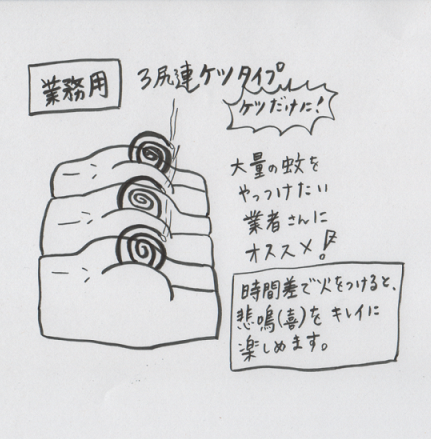 業務用
3尻連ケツタイプ
ケツだけに!
大量の蚊を
やっつけたい
業者さんに
オススメ!
時間差で火をつけると、
悲鳴(喜)をキレイに
楽しめます。